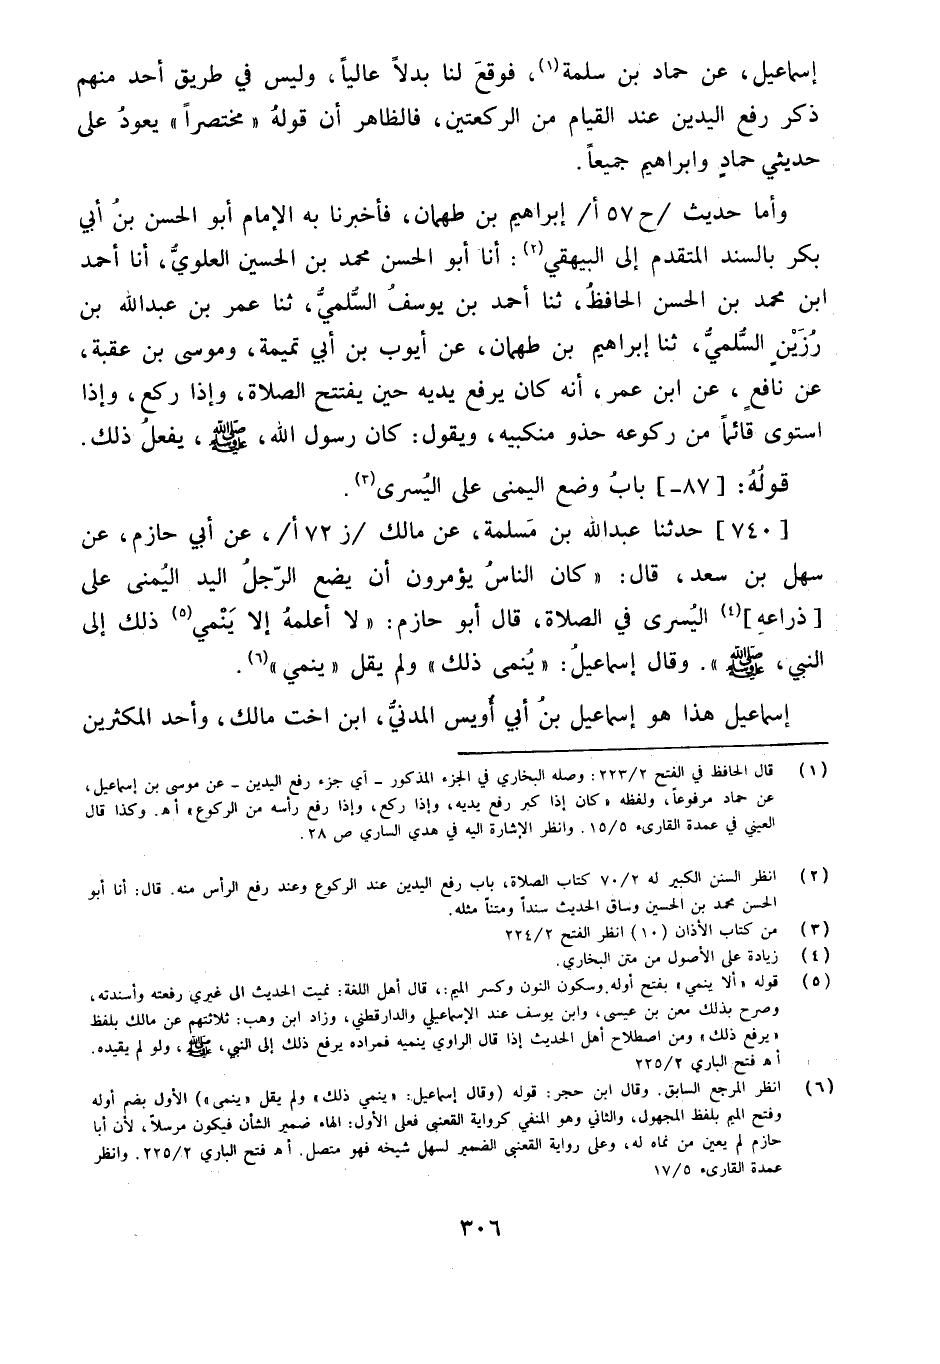 إسماعيل، عن حماد بن سلمة(١)، فوقعَ لنا بدلاً عالياً، وليس في طريق أحد منهم
ذكر رفع اليدين عند القيام من الركعتين، فالظاهر أن قولهُ «مختصراً» يعودُ على
حديثي حمادٍ وابراهيم جميعاً.
وأما حديث /ح ٥٧ أ/ إبراهيم بن طهمان، فأخبرنا به الإمام أبو الحسن بنُ أبي
بكر بالسند المتقدم إلى البيهقي(٢): أنا أبو الحسن محمد بن الحسين العلويُّ، أنا أحمد
ابن محمد بن الحسن الحافظُ، ثنا أحمد بن يوسفُ السُّلميُّ، ثنا عمر بن عبدالله بن
رُزَيْنٍ السُّلميُّ، ثنا إبراهيم بن طهمان، عن أيوب بن أبي تميمة، وموسى بن عقبة،
عن نافعٍ، عن ابن عمر، أنه كان يرفع يديه حين يفتتح الصلاة، وإذا ركع، وإذا
استوى قائماً من ركوعه حذو منكبيه، ويقول: كان رسول الله، ﷺ، يفعلُ ذلك.
قولُهُ: [٨٧-] بابُ وضع اليمنى على اليُسرى(٣).
[٧٤٠] حدثنا عبدالله بن مَسلمة، عن مالك /ز ٧٢ أ/، عن أبي حازم، عن
سهل بن سعد، قال: «كان الناسُ يؤمرون أن يضع الرّجلُ اليد اليُمنى على
[ذراعهِ](٤) اليُسرى في الصلاة، قال أبو حازم: «لا أعلمهُ إلا يَنْمي(٥) ذلك إلى
النبي، ﷺ». وقال إسماعيلُ: «يُنمى ذلك» ولم يقل «ينمي»(٦).
إسماعيل هذا هو إسماعيل بنُ أبي أُويس المدنيُّ، ابن اخت مالك، وأحد المكثرين
(١) قال الحافظ في الفتح ٢٢٣/٢: وصله البخاري في الجزء المذكور - أي جزء رفع اليدين - عن موسى بن إسماعيل،
عن حماد مرفوعاً، ولفظه «كان إذا كبر رفع يديه، وإذا ركع، وإذا رفع رأسه من الركوع» أ هـ. وكذا قال
العيني في عمدة القارىء ١٥/٥. وانظر الإشارة اليه في هدي الساري ص ٢٨.
(٢) انظر السنن الكبير له ٧٠/٢ كتاب الصلاة، باب رفع اليدين عند الركوع وعند رفع الرأس منه. قال: أنا أبو
الحسن محمد بن الحسين وساق الحديث سنداً ومتناً مثله.
(٣) من كتاب الأذان (١٠) انظر الفتح ٢٢٤/٢
(٤) زيادة على الأصول من متن البخاري.
(٥) قوله «ألا ينمي» بفتح أوله وسكون النون وكسر الميم:، قال أهل اللغة: نميت الحديث الى غيري رفعته وأسندته،
وصرح بذلك معن بن عيسى، وابن يوسف عند الإسماعيلي والدارقطني، وزاد ابن وهب: ثلاثتهم عن مالك بلفظ
«يرفع ذلك» ومن اصطلاح أهل الحديث إذا قال الراوي ينميه فمراده يرفع ذلك إلى النبي، ﷺ، ولو لم يقيده.
أ هـ فتح الباري ٢٢٥/٢
(٦) انظر المرجع السابق. وقال ابن حجر: قوله (وقال إسماعيل: «ينمي ذلك» ولم يقل «ينمى») الأول بضم أوله
وفتح الميم بلفظ المجهول، والثاني وهو المنفي كرواية القعنبي فعلى الأول: الهاء ضمير الشأن فيكون مرسلاً، لأن أبا
حازم لم يعين من نماه له، وعلى رواية القعنبي الضمير لسهل شيخه فهو متصل. أ هـ فتح الباري ٢٢٥/٢. وانظر
عمدة القارىء ١٧/٥
٣٠٦